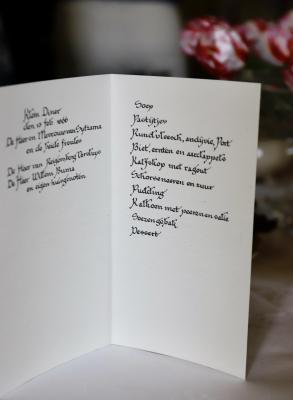 Klein Diner
den 13 feb. 1866
De Heer en Mevrouw van Sytzama
en de Freule
De Heer van
De Heer Willem Buma
en eigen huisgenoten.
Soep
Pastijtjes
Rundvleesch, andijvie, Port
Biet, erten en aerdappels
Kalfskop met ragout
Schorseneeren en zuur
Pudding
Kalkoen met peeren en salie
Soezengebak
Dessert